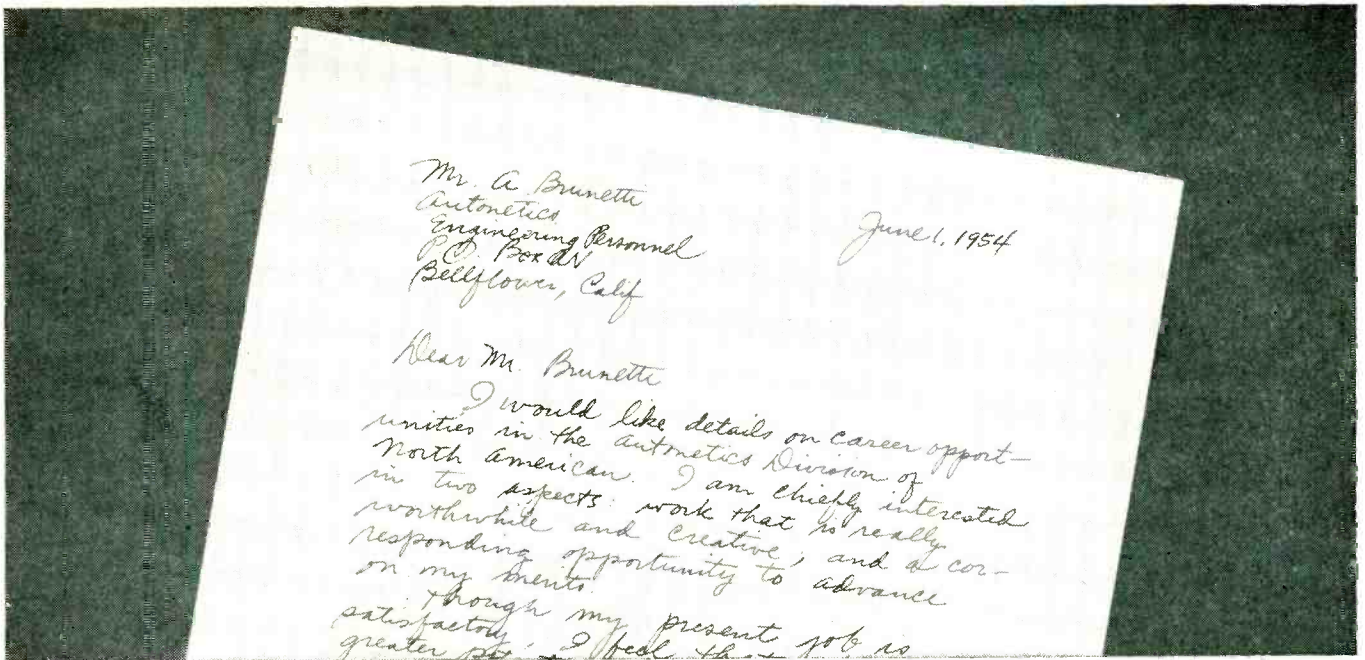 Mr. A Brunette
Autonetics
Engineering Personnel
P.O. Box AN
Bellflower, Calif
June 1, 1954
Dear Mr. Brunette
I would like details on career opport-
unities in the Autonetics Division of
North American. I am chiefly interested
in two aspects: work that is really
worthwhile and creative, and a cor-
responding opportunity to advance
on my merits.
Though my present job is
satisfactory, I feel that
greater